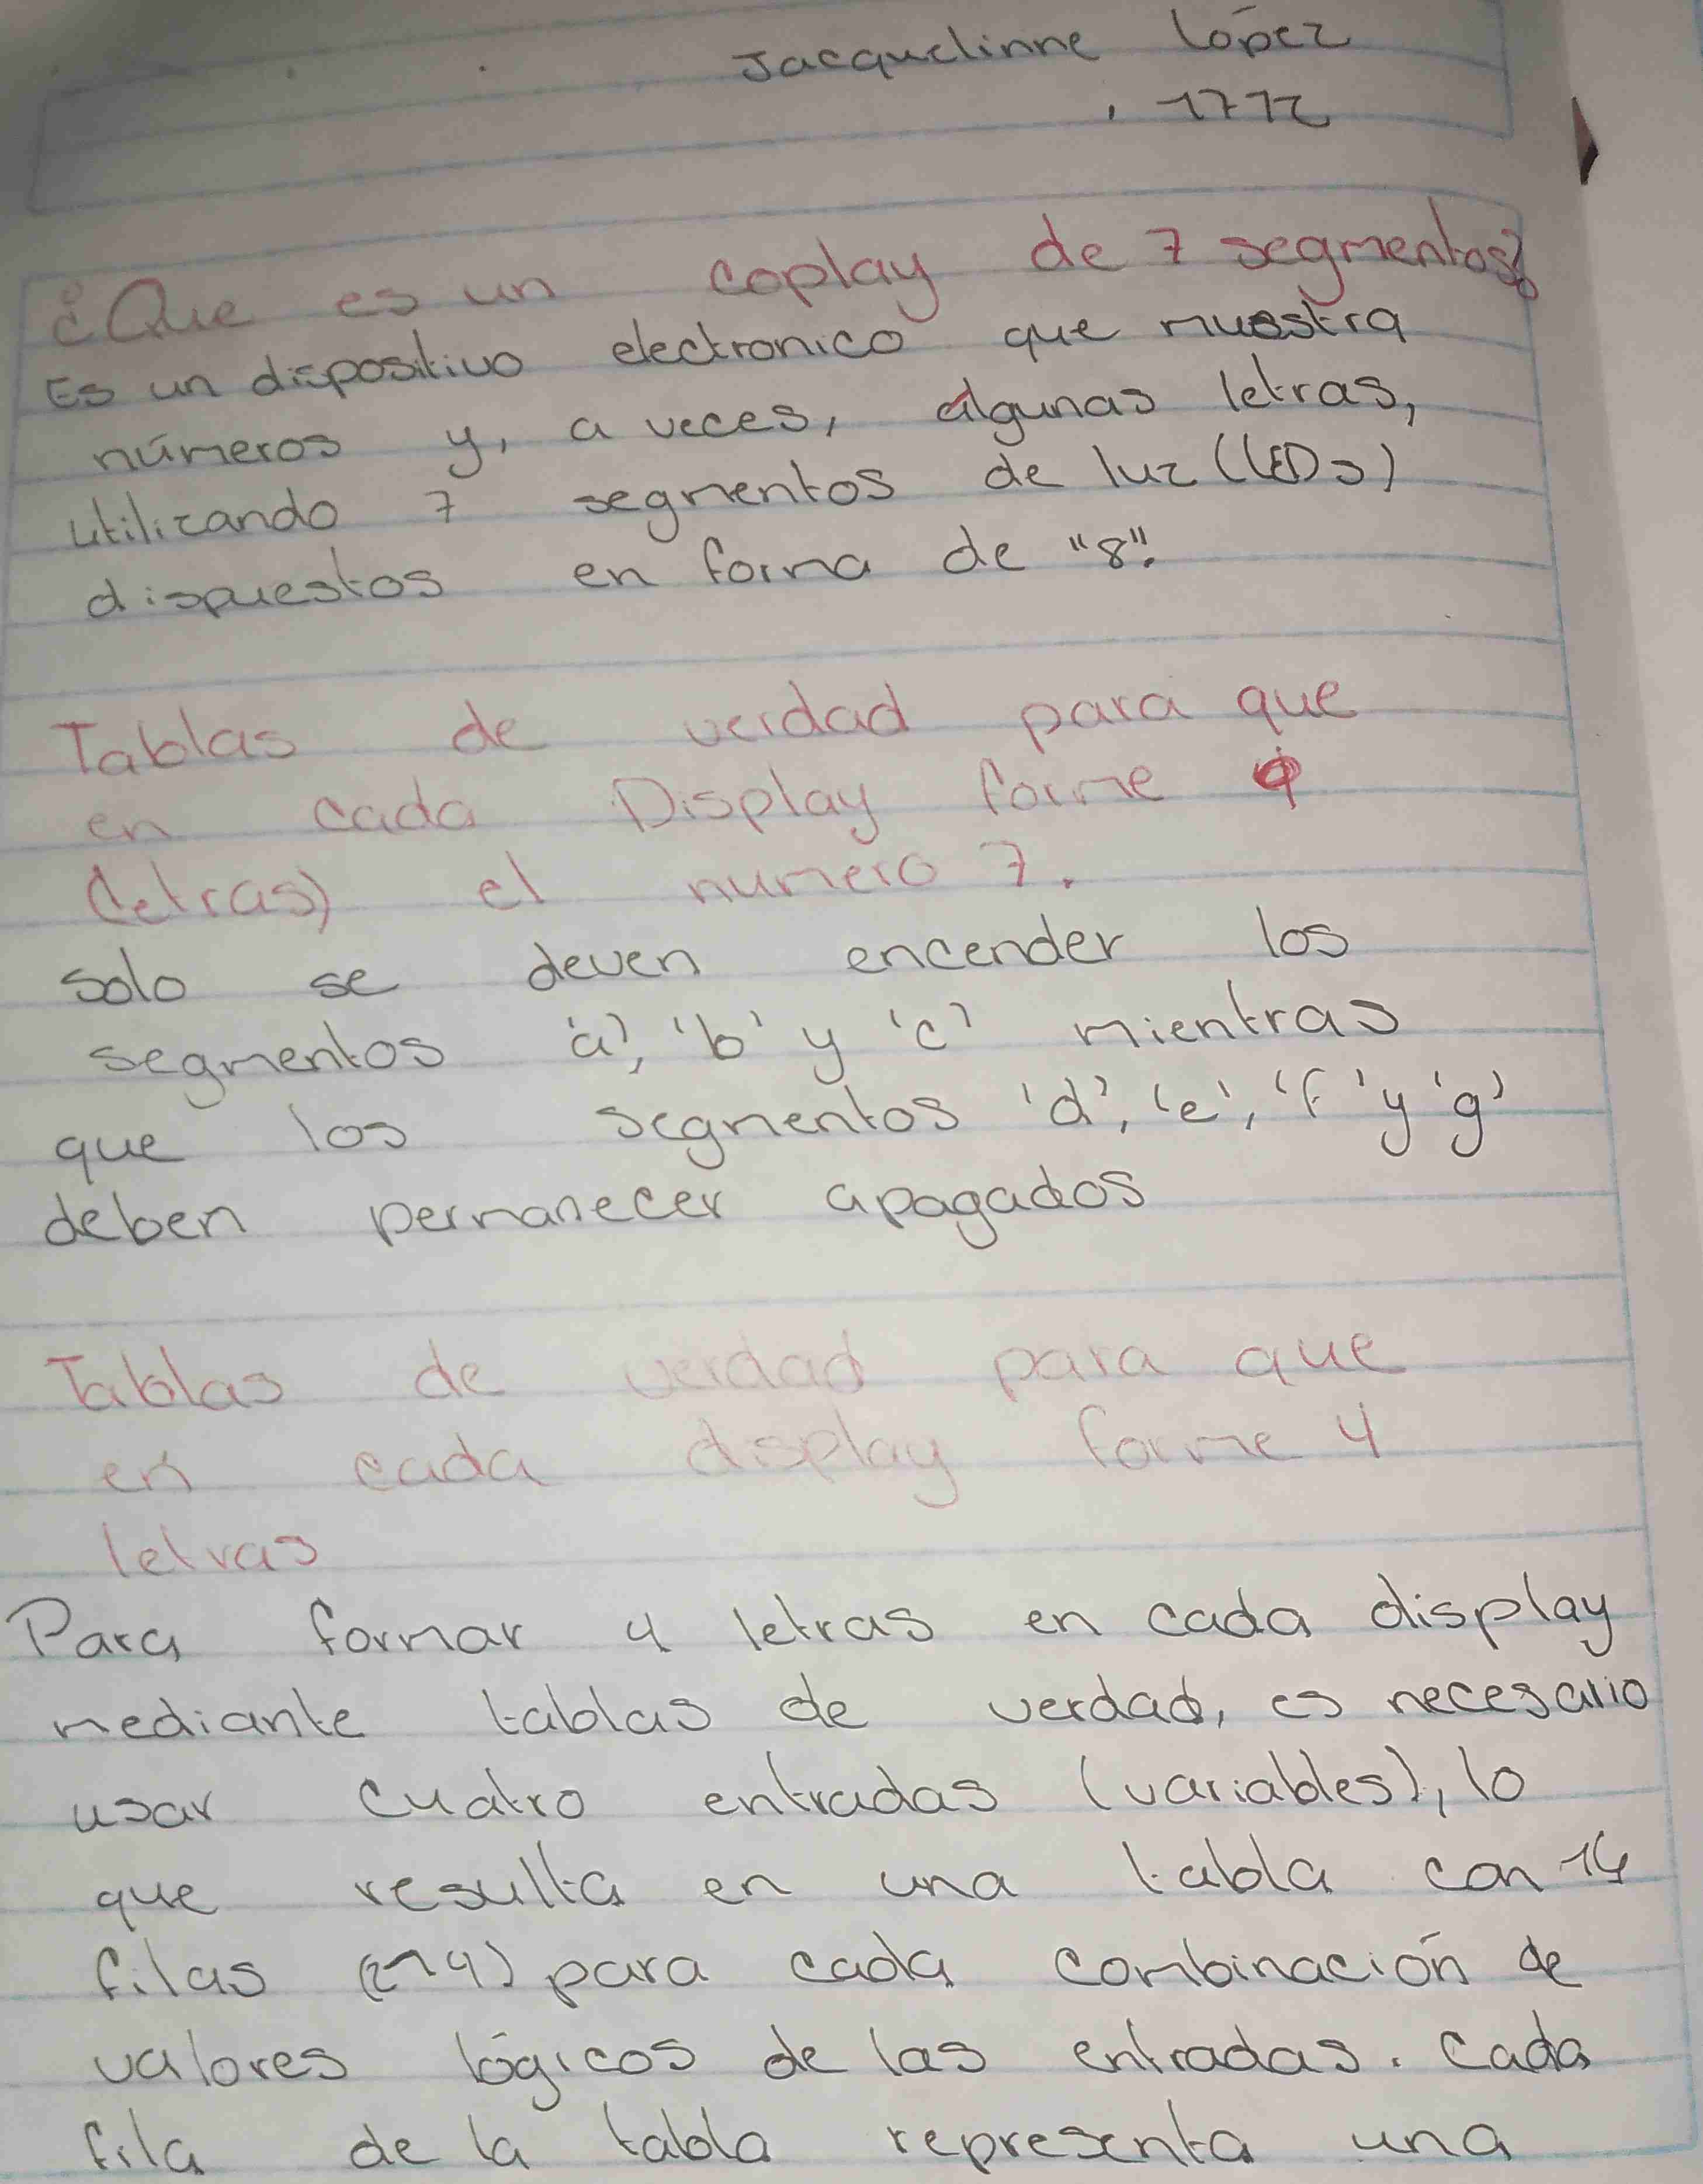 Jacquelinne López
, 1772
¿Que es un coplay de 7 segmentos?
Es un dispositivo electronico que muestra
números y, a veces, algunas letras,
utilizando 7 segmentos de luz (LEDs)
dispuestos en forma de "8".
Tablas de verdad para que
en cada Display forme
(letras) el numero 7.
solo se deven encender los
segmentos 'a', 'b' y 'c' mientras
que los segmentos 'd', 'e', 'f' y 'g'
deben permanecer apagados
Tablas de verdad para que
en cada display forme 4
letras
Para formar 4 letras en cada display
mediante tablas de verdad, es necesario
usar cuatro entradas (variables), lo
que resulta en una tabla con 16
filas (2^4) para cada combinación de
valores lógicos de las entradas. Cada
fila de la tabla representa una